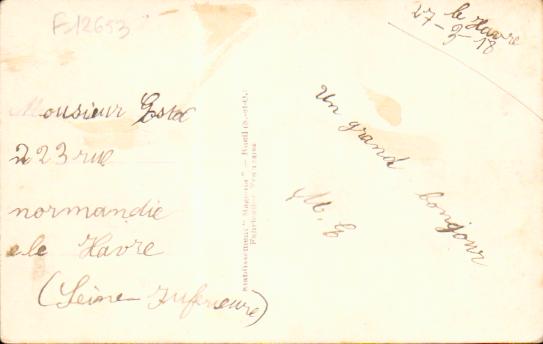 F-12653
le Havre
27-9-18
Monsieur
n 23 rue
normandie
le Havre
(Seine Inférieure)
Un grand bonjour
M. G